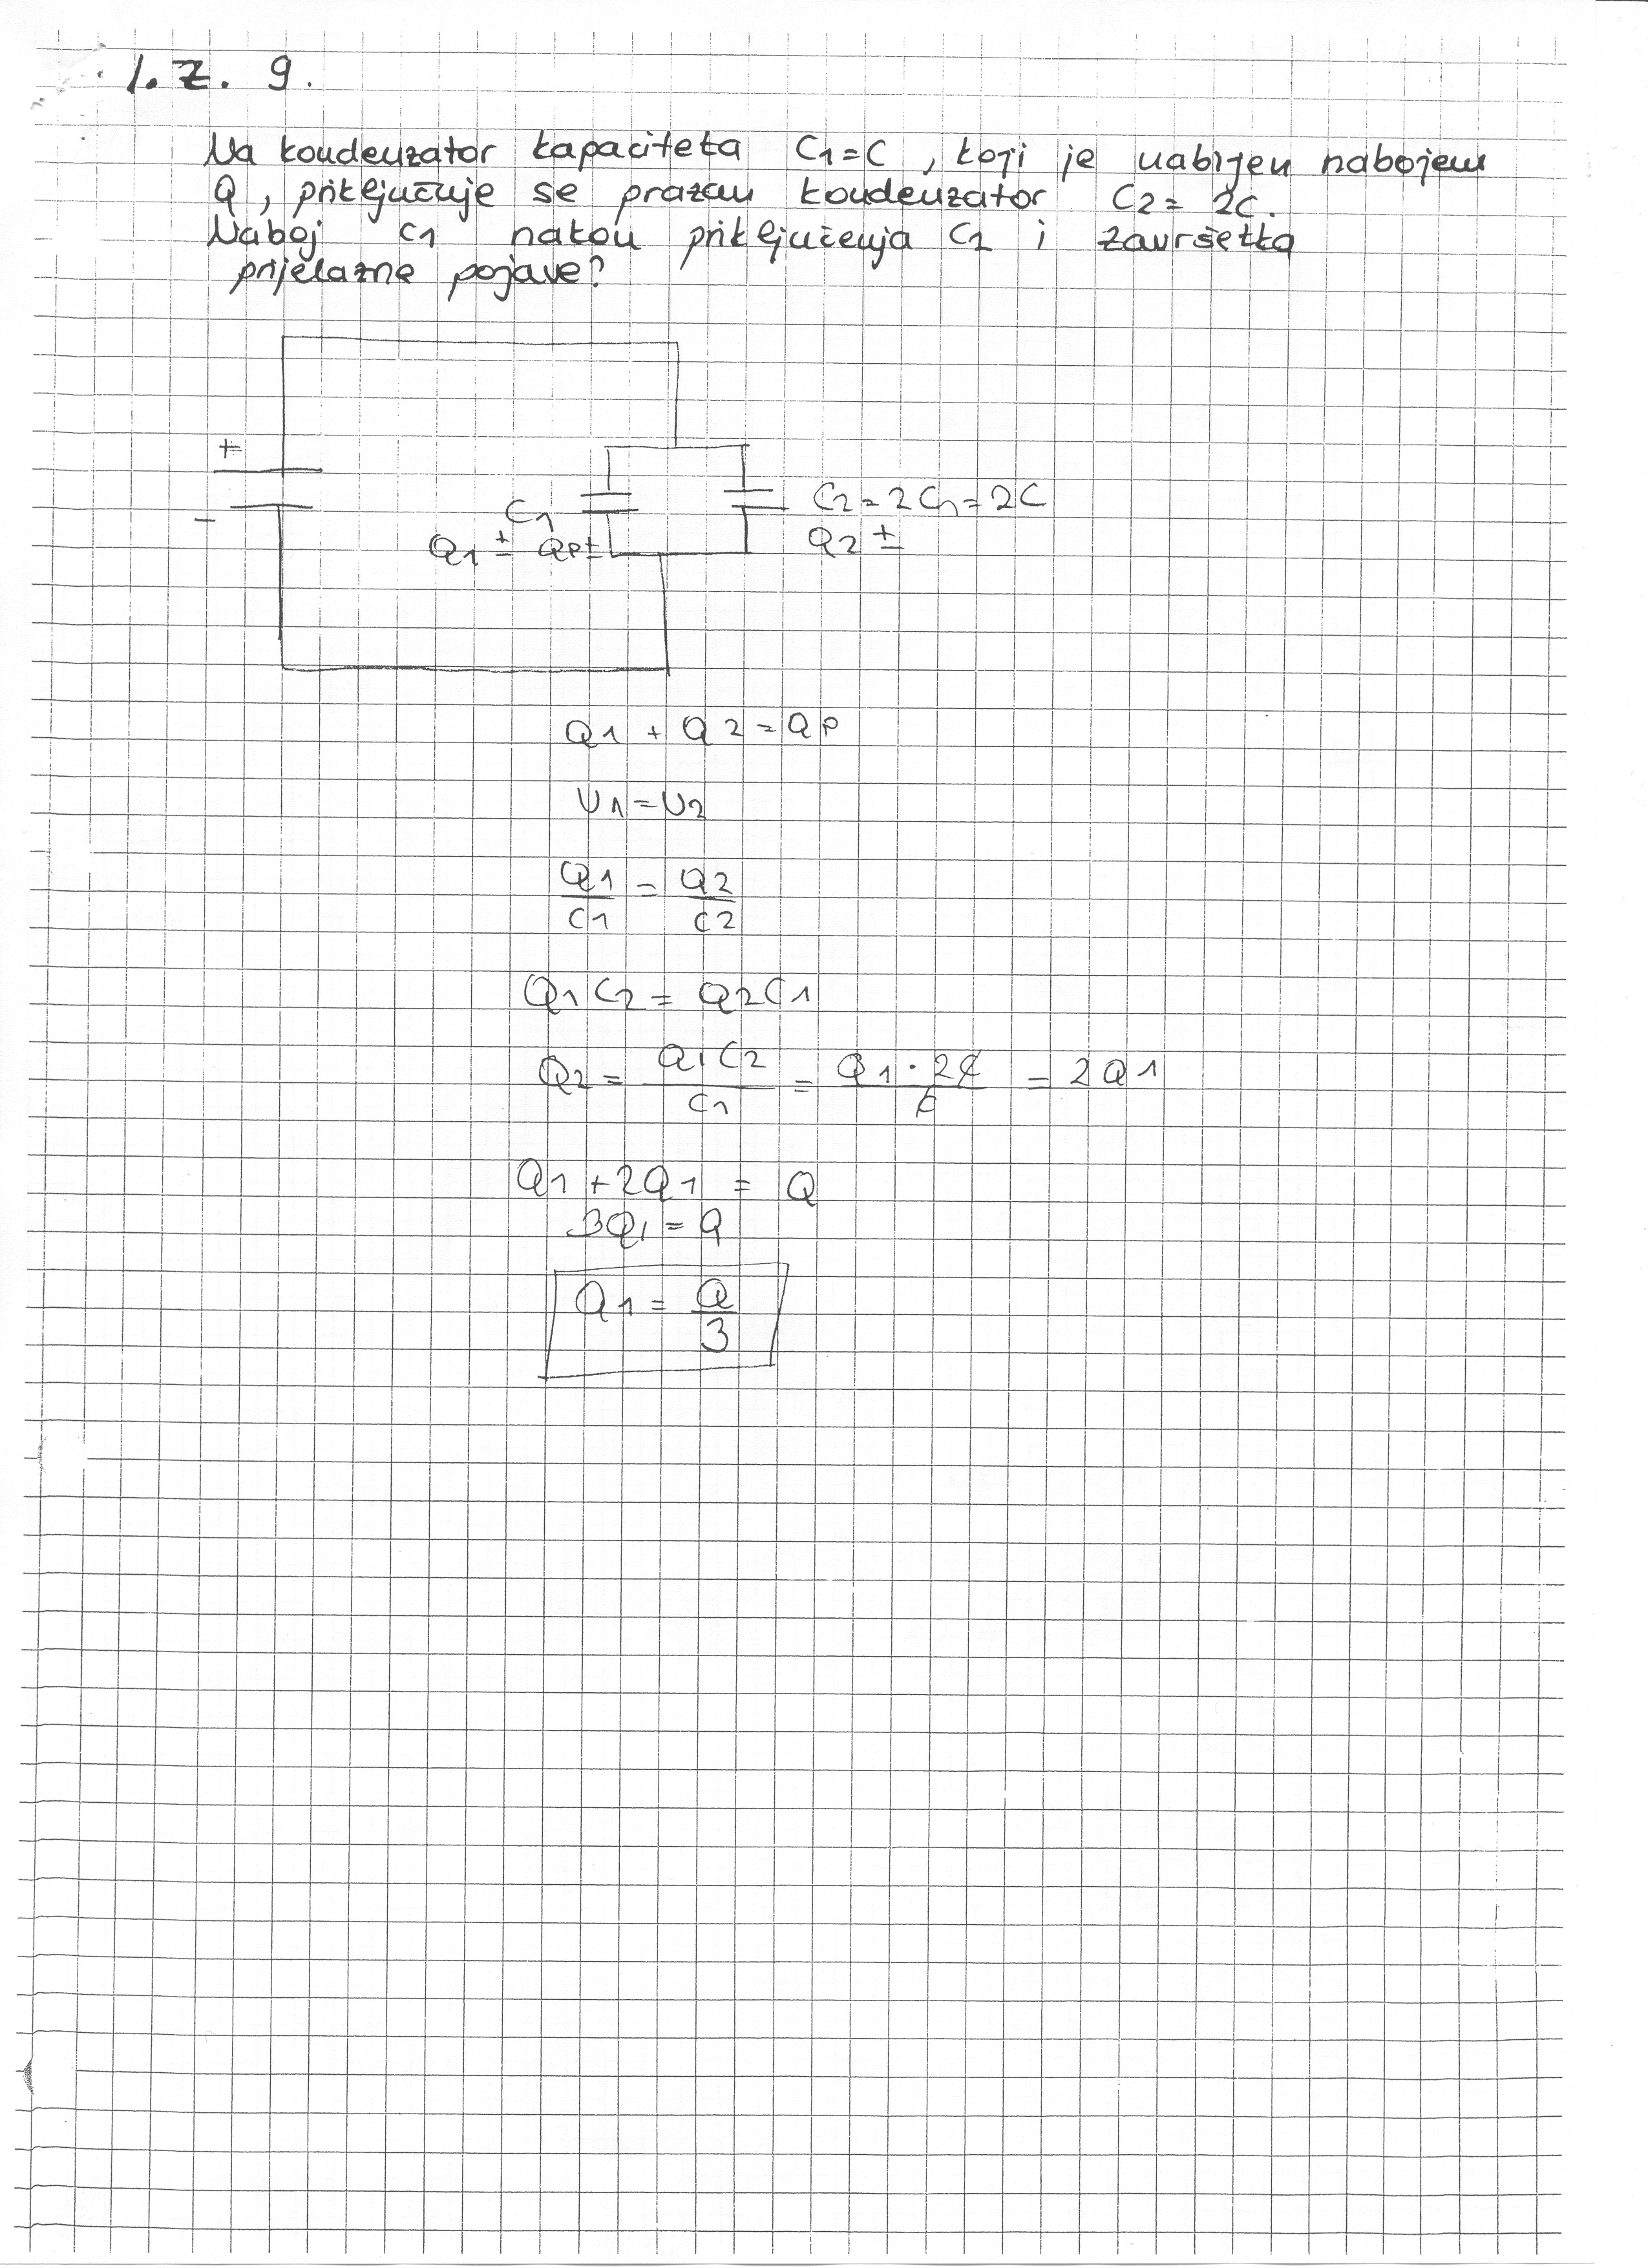 1. Z. 9.
Na kondenzator kapaciteta C1=C, koji je nabijen nabojem
Q, priključuje se prazan kondenzator C2= 2C.
Naboj C1 nakon priključenja C2 i završetka
prijelazne pojave?
+
-
C1
Q1 ± Qp±
C2=2C1=2C
Q2 ±
Q1 + Q2 = QP
U1=U2
Q1/C1 = Q2/C2
Q1C2 = Q2C1
Q2 = Q1C2/C1 = Q1·2C/C = 2Q1
Q1+2Q1 = Q
3Q1 = Q
Q1 = Q/3